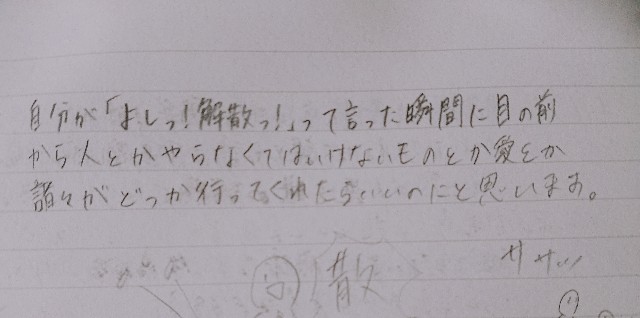 自分が「よしっ！解散っ！」って言った瞬間に目の前
から人とかやらなくてはいけないものとか愛とか
諸々がどっか行ってくれたらいいのにと思います。
散
ササッ